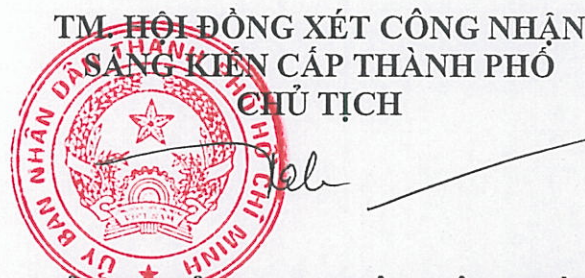 TM. HỘI ĐỒNG XÉT CÔNG NHẬN
SÁNG KIẾN CẤP THÀNH PHỐ
CHỦ TỊCH
ỦY BAN NHÂN DÂN THÀNH PHỐ HỒ CHÍ MINH
VIỆT NAM